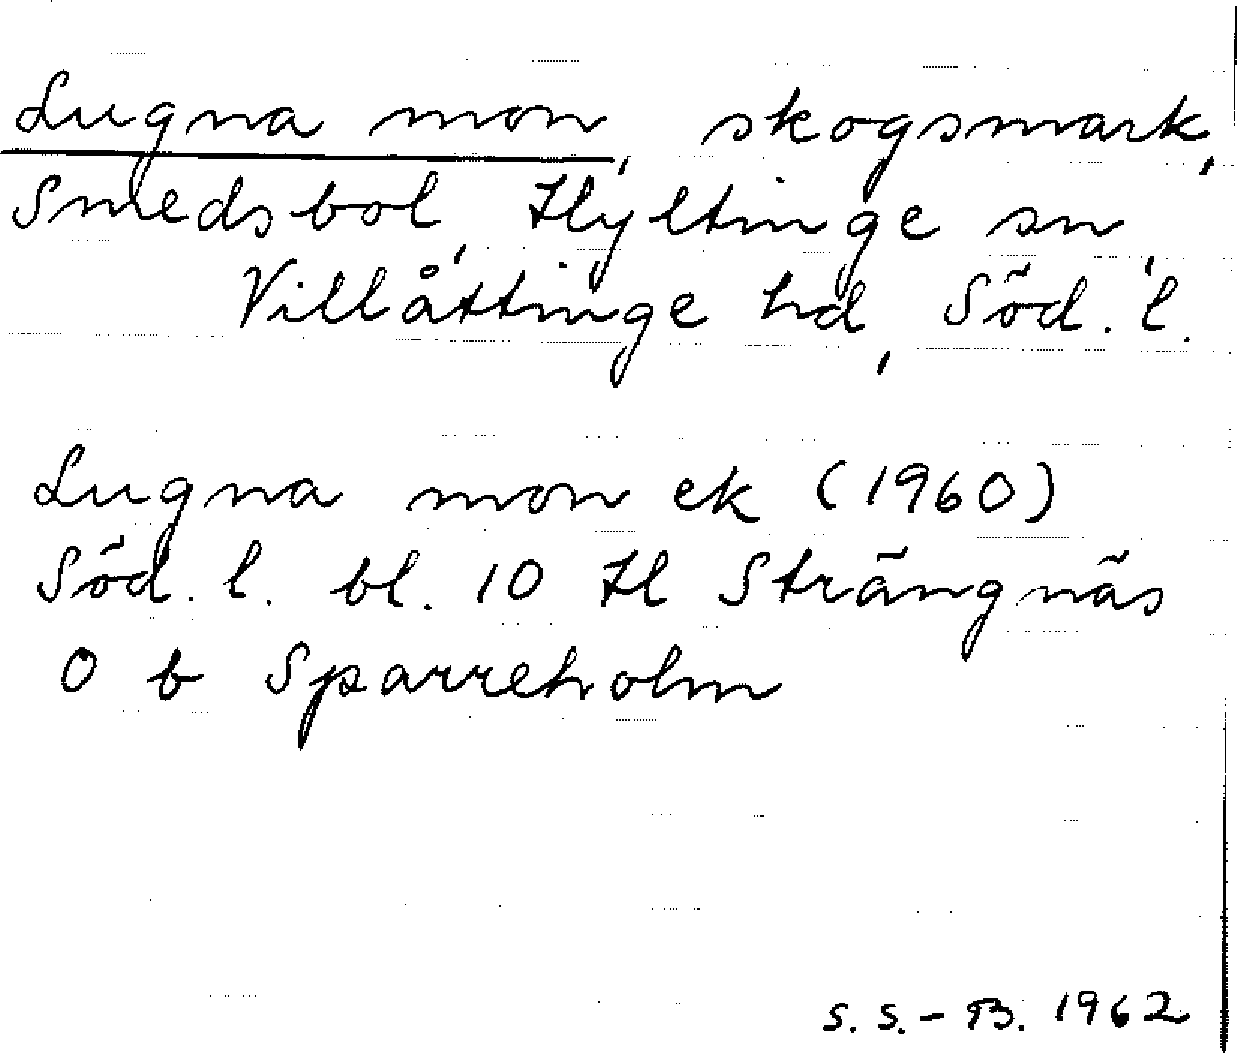 Lugna mon, skogsmark,
Smedsbol, Hyltinge sn,
Villåttinge hd, Söd. l.
Lugna mon ek (1960)
Söd. l. bl. 10 H1 Strängnäs
0 b Sparreholm
S. S.-B. 1962